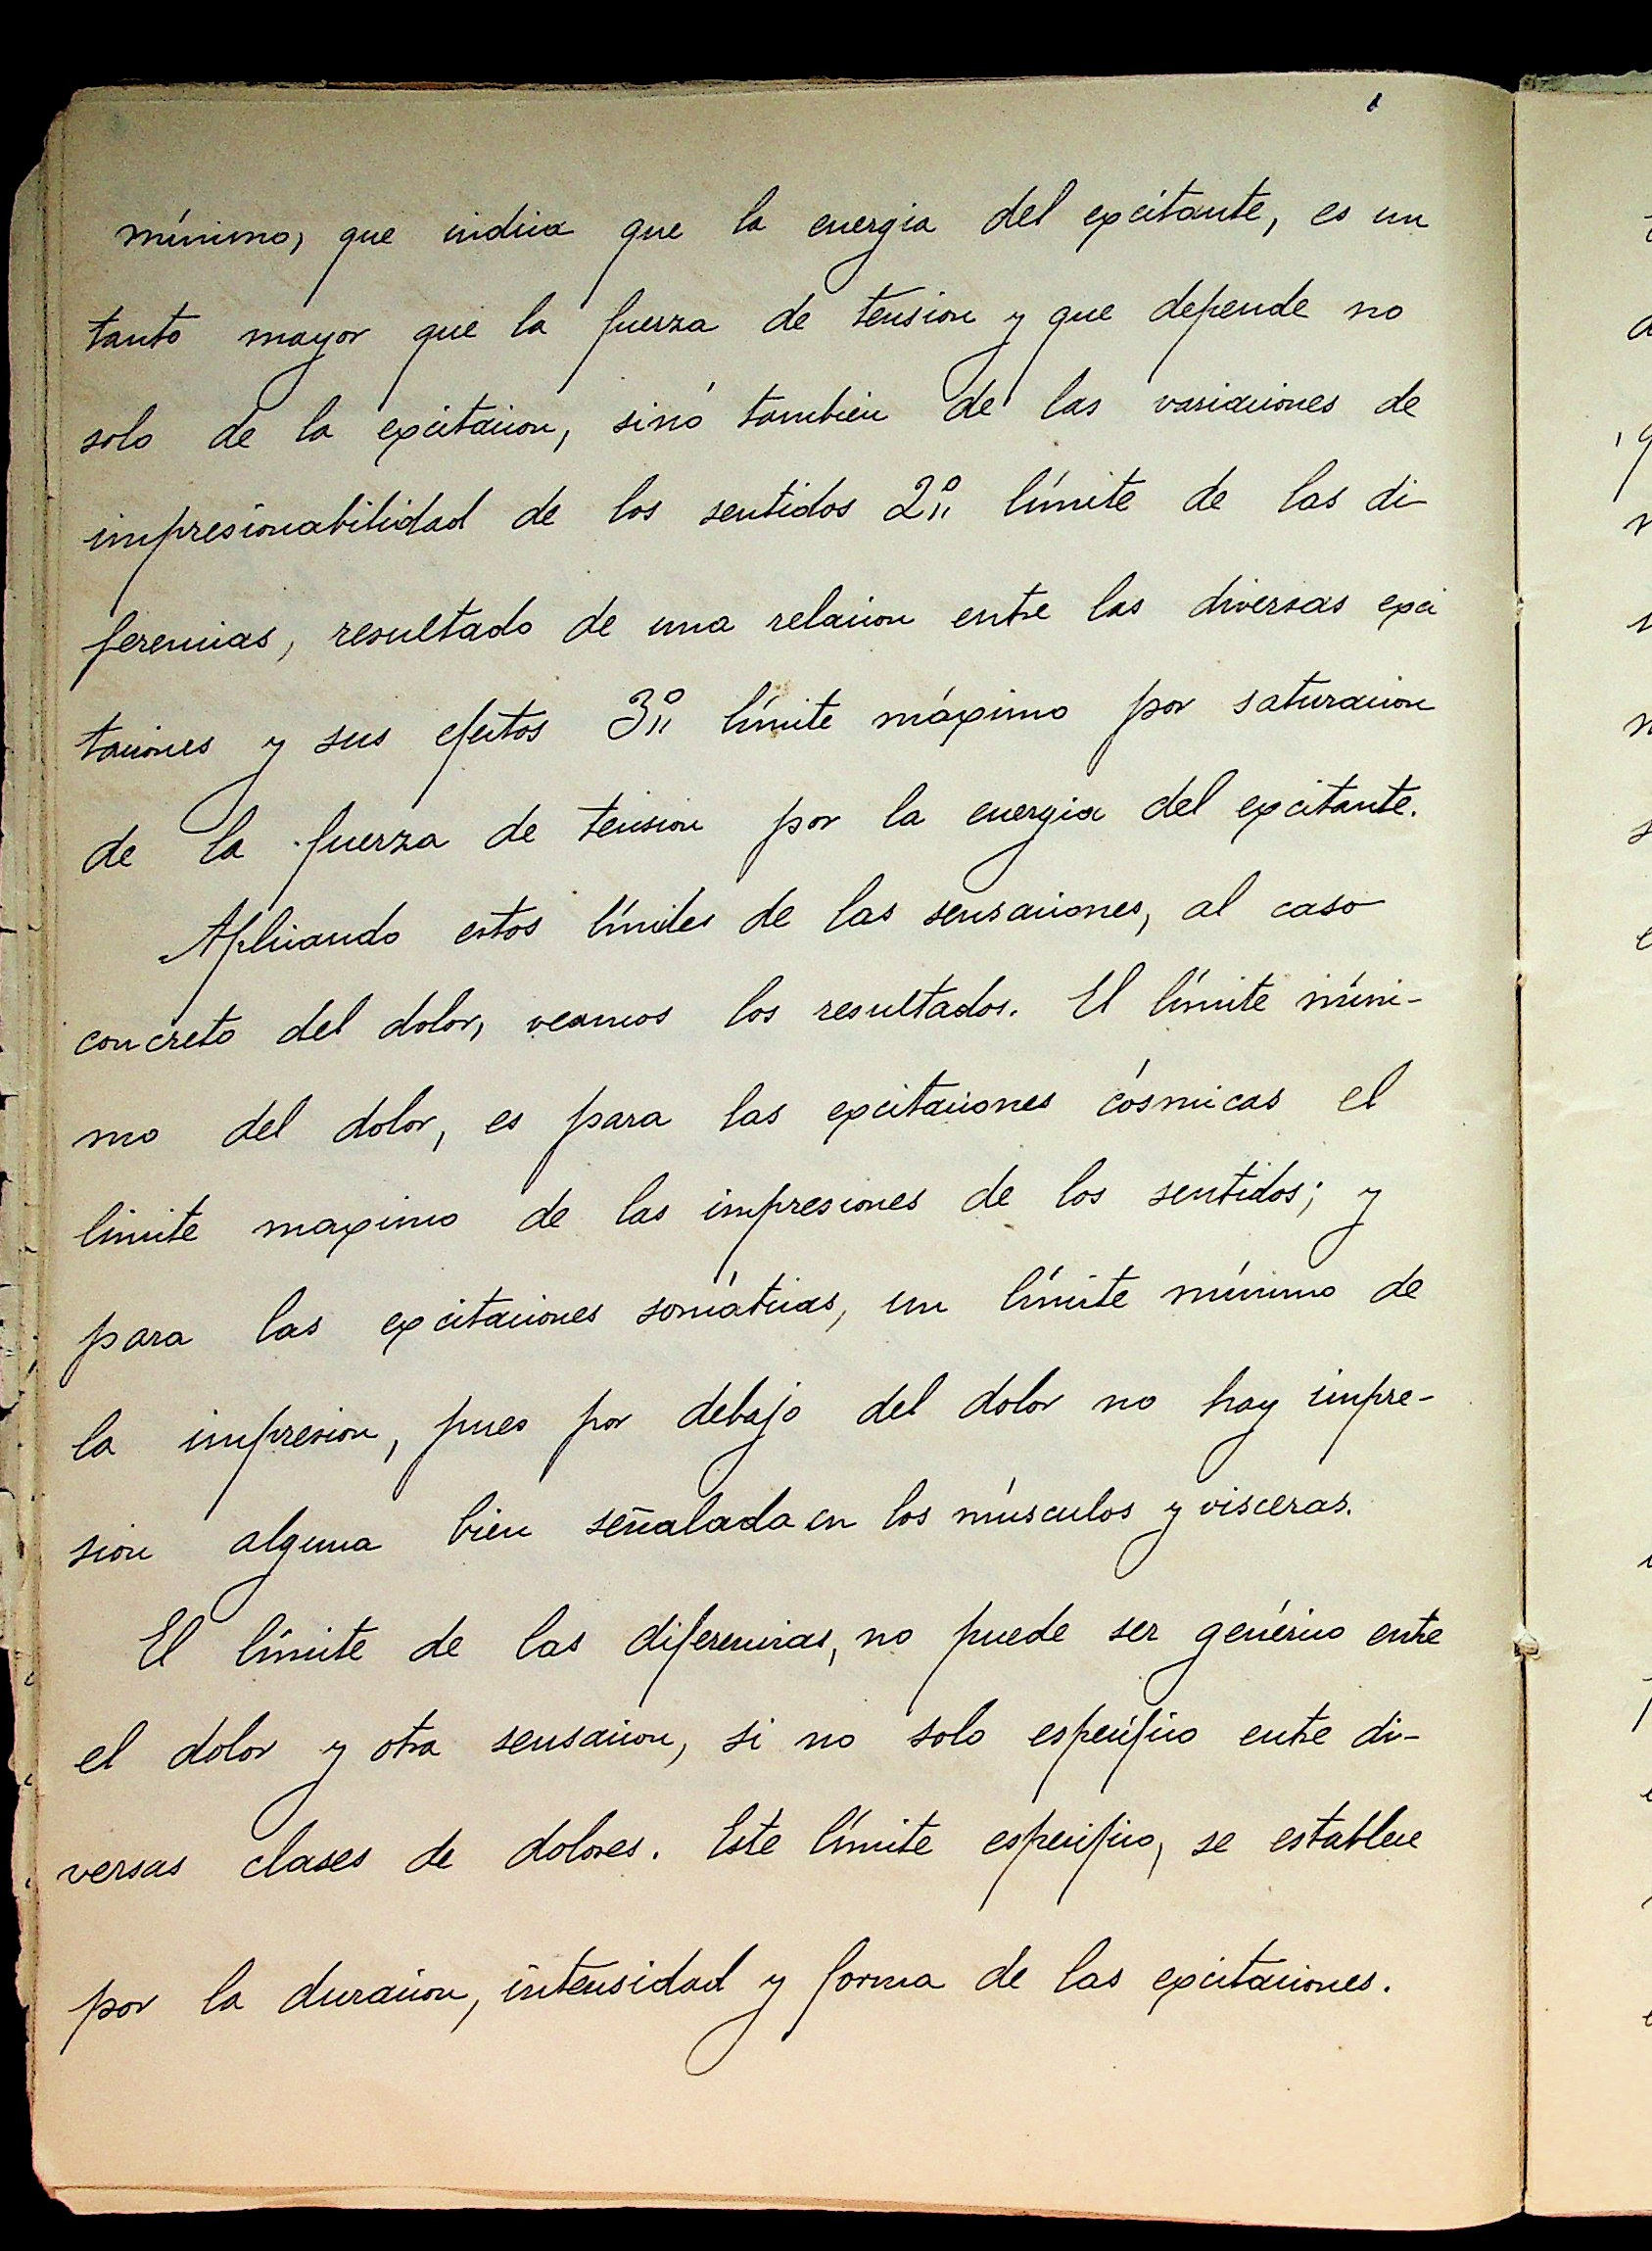 mínimo, que indica que la energia del excitante, es un
tanto mayor que la fuerza de tension y que depende no
solo de la excitacion, sinó tambien de las variaciones de
impresionabilidad de los sentidos 2º límite de las di-
ferencias, resultado de una relacion entre las diversas exci
taciones y sus efectos 3º límite máximo por saturacion
de la fuerza de tension por la energia del excitante.
Aplicando estos límites de las sensaciones, al caso
concreto del dolor, veamos los resultados. El límite míni-
mo del dolor, es para las excitaciones cósmicas el
limite maximo de las impresiones de los sentidos; y
para las excitaciones somáticas, un límite mínimo de
la impresion, pues por debajo del dolor no hay impre-
sion alguna bien señalada en los músculos y visceras.
El límite de las diferencias, no puede ser genérico entre
el dolor y otra sensacion, si no solo especifico entre di-
versas clases de dolores. Este límite especifico, se establece
por la duracion, intensidad y forma de las excitaciones.